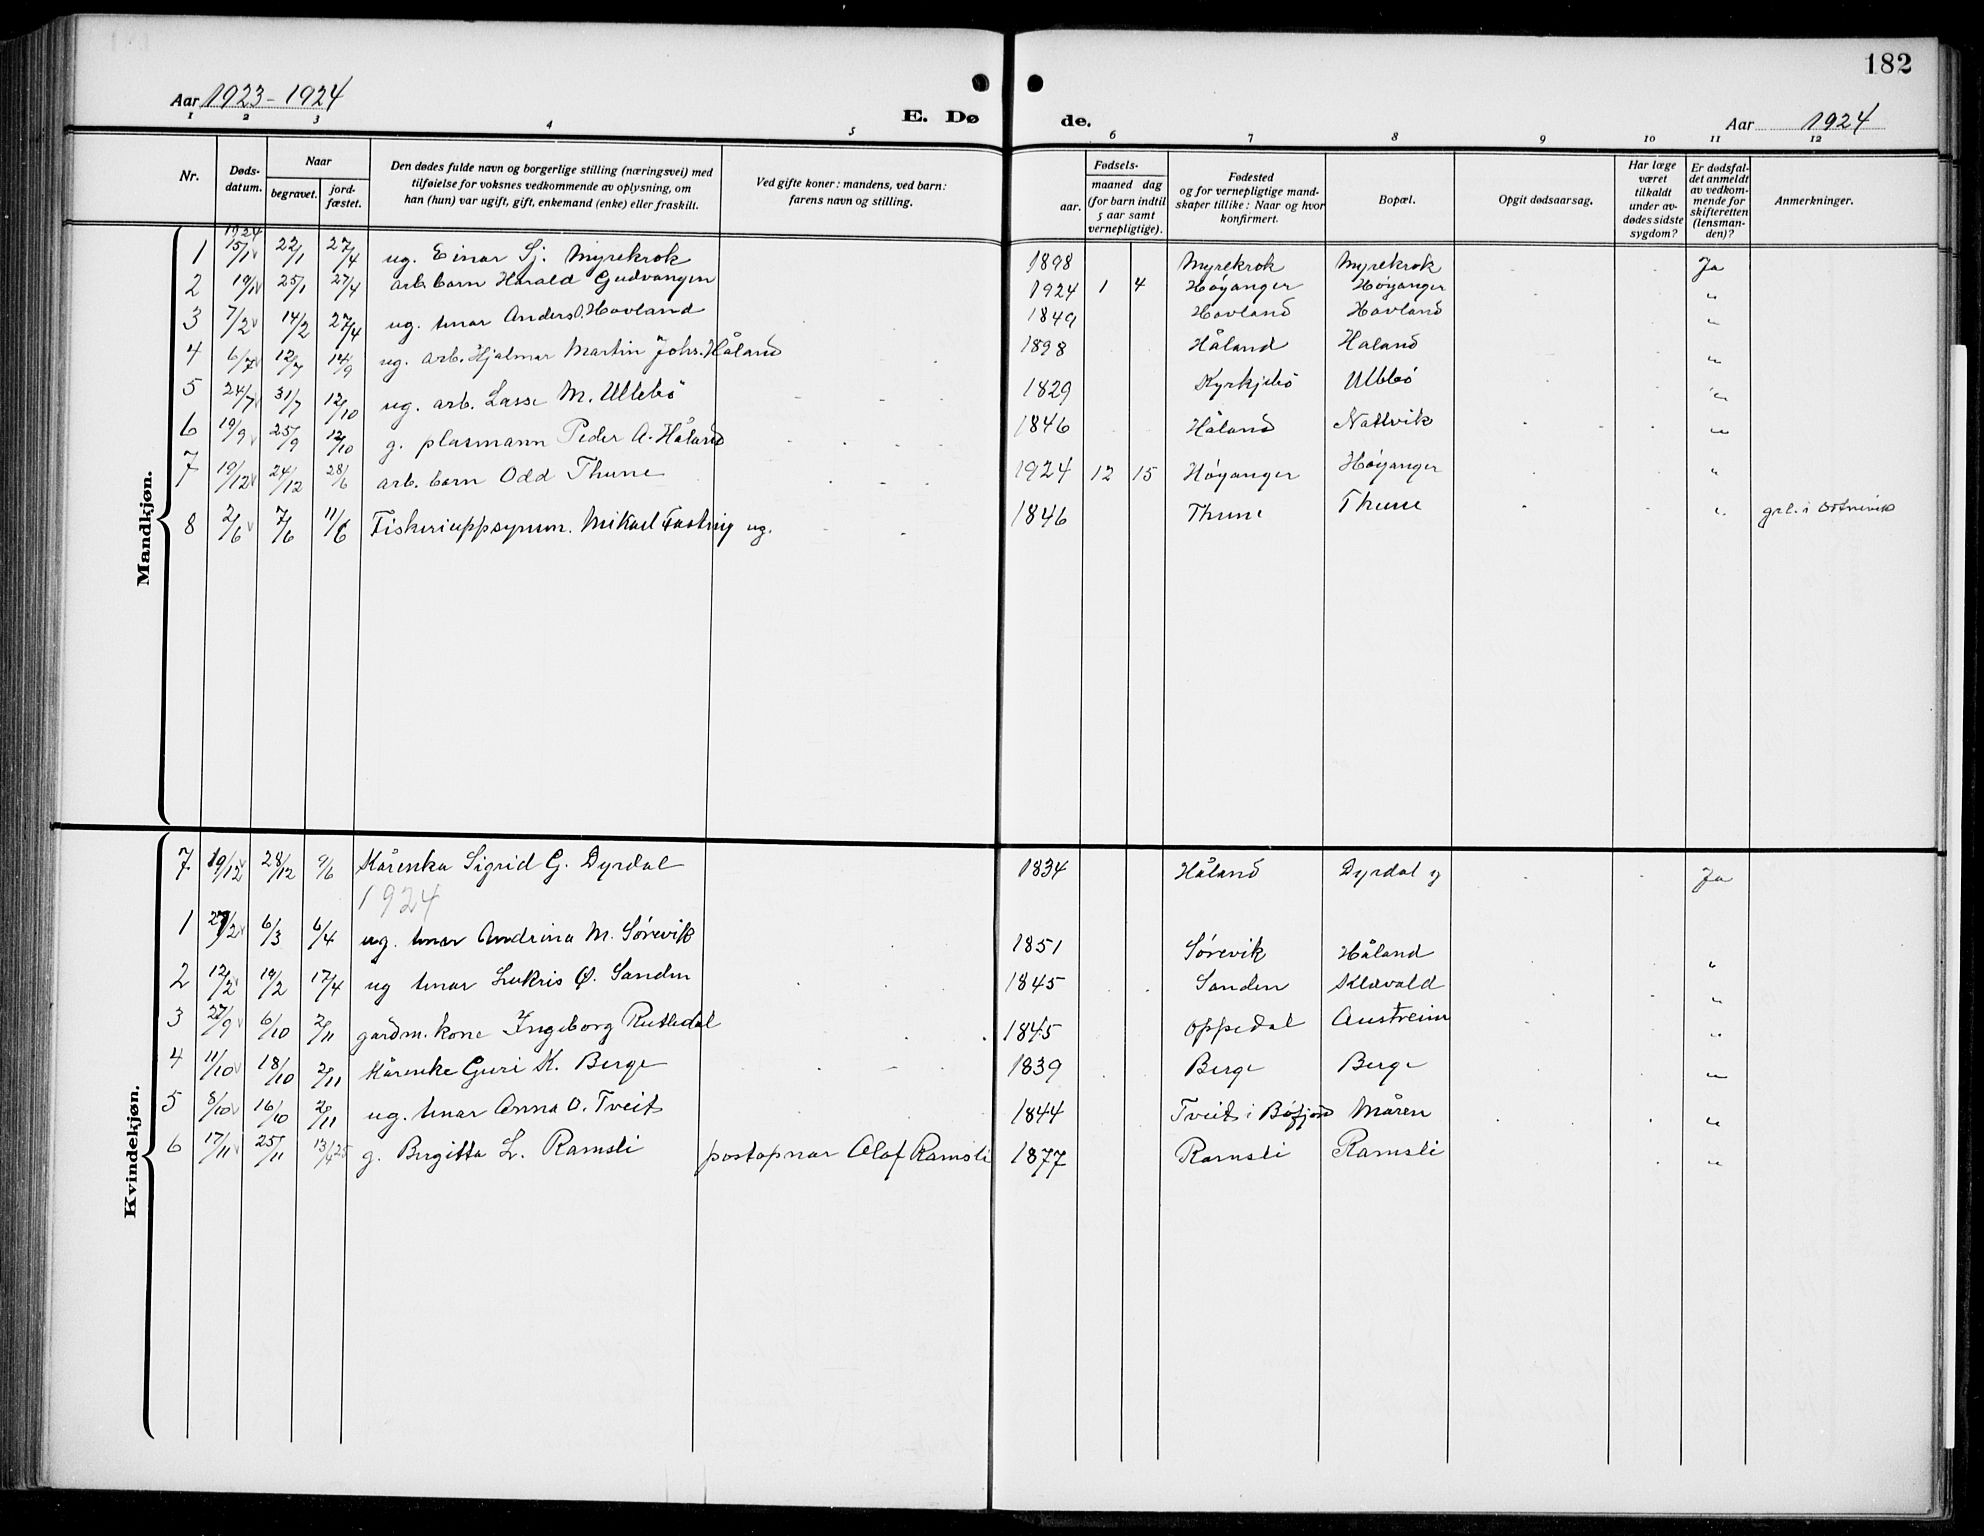 182
Aar 1923-1924
E. Dø de.
Aar 1924
1 2 3 4 5 6 7 8 9 10 11 12
Nr.
Døds-
datum.
Naar
begravet.
jord-
fæstet.
Den dødes fulde navn og borgerlige stilling (næringsvei) med
tilføielse for voksnes vedkommende av oplysning, om
han (hun) var ugift, gift, enkemand (enke) eller fraskilt.
Ved gifte koner: mandens, ved barn:
farens navn og stilling.
Fødsels-
aar.
maaned dag
(for barn indtil
5 aar samt
vernepligtige).
Fødested
og for vernepligtige mand-
skaper tillike: Naar og hvor
konfirmert.
Bopæl.
Opgit dødsaarsag.
Har læge
været
tilkaldt
under av-
dødes sidste
sygdom?
Er dødsfal-
det anmeldt
av vedkom-
mende for
skifteretten
(lensman-
den)?
Anmerkninger.
Mandkjøn.
1924
1 15/1 22/1 27/4 ug. Einar Sj. Myrekrok 1898 Myrekrok Myrekrok Ja
2 19/1 25/1 27/4 arb. barn Harald Gudvangen 1924 1 4 Høyanger Høyanger "
3 7/2 14/2 27/4 ug. tenar Anders O. Hovland 1849 Hovland Hovland "
4 6/7 12/7 14/9 ug. arb. Hjalmar Martin Johs. Håland 1898 Håland Håland "
5 24/7 31/7 12/10 ug. arb. Lasse M. Ullebø 1829 Kyrkjebø Ullebø "
6 19/9 25/9 12/10 g. plasmann Peder A. Håland 1846 Håland Nattvik "
7 19/12 24/12 28/6 arb. barn Odd Thune 1924 12 15 Høyanger Høyanger "
8 2/6 7/6 11/6 Fiskeriuppsynsm. Mikael Fastrig ug. 1846 Thune Thune "
Kvindekjøn.
7 19/12 28/12 9/6 Kårenka Sigrid G. Dyrdal 1834 Håland Dyrdal y Ja
1924
1 27/2 6/3 6/4 ug. tenar Andrina M. Sørevik 1851 Sørevik Håland "
2 12/2 19/2 17/4 ug tenar Lukris Ø. Sanden 1845 Sanden Klævold "
3 27/9 6/10 2/11 gardm. kone Ingeborg Rutledal 1845 Oppedal Austreim "
4 11/10 18/10 2/11 Kårenke Guri K. Berge 1839 Berge Berge "
5 8/10 16/10 2/11 ug. tenar Anna O. Tveit 1844 Tveit i Bøfjord Måren "
6 17/11 25/11 13/4 25 g. Birgitta L. Ramsli postopnar Olaf Ramsli 1877 Ramsli Ramsli "